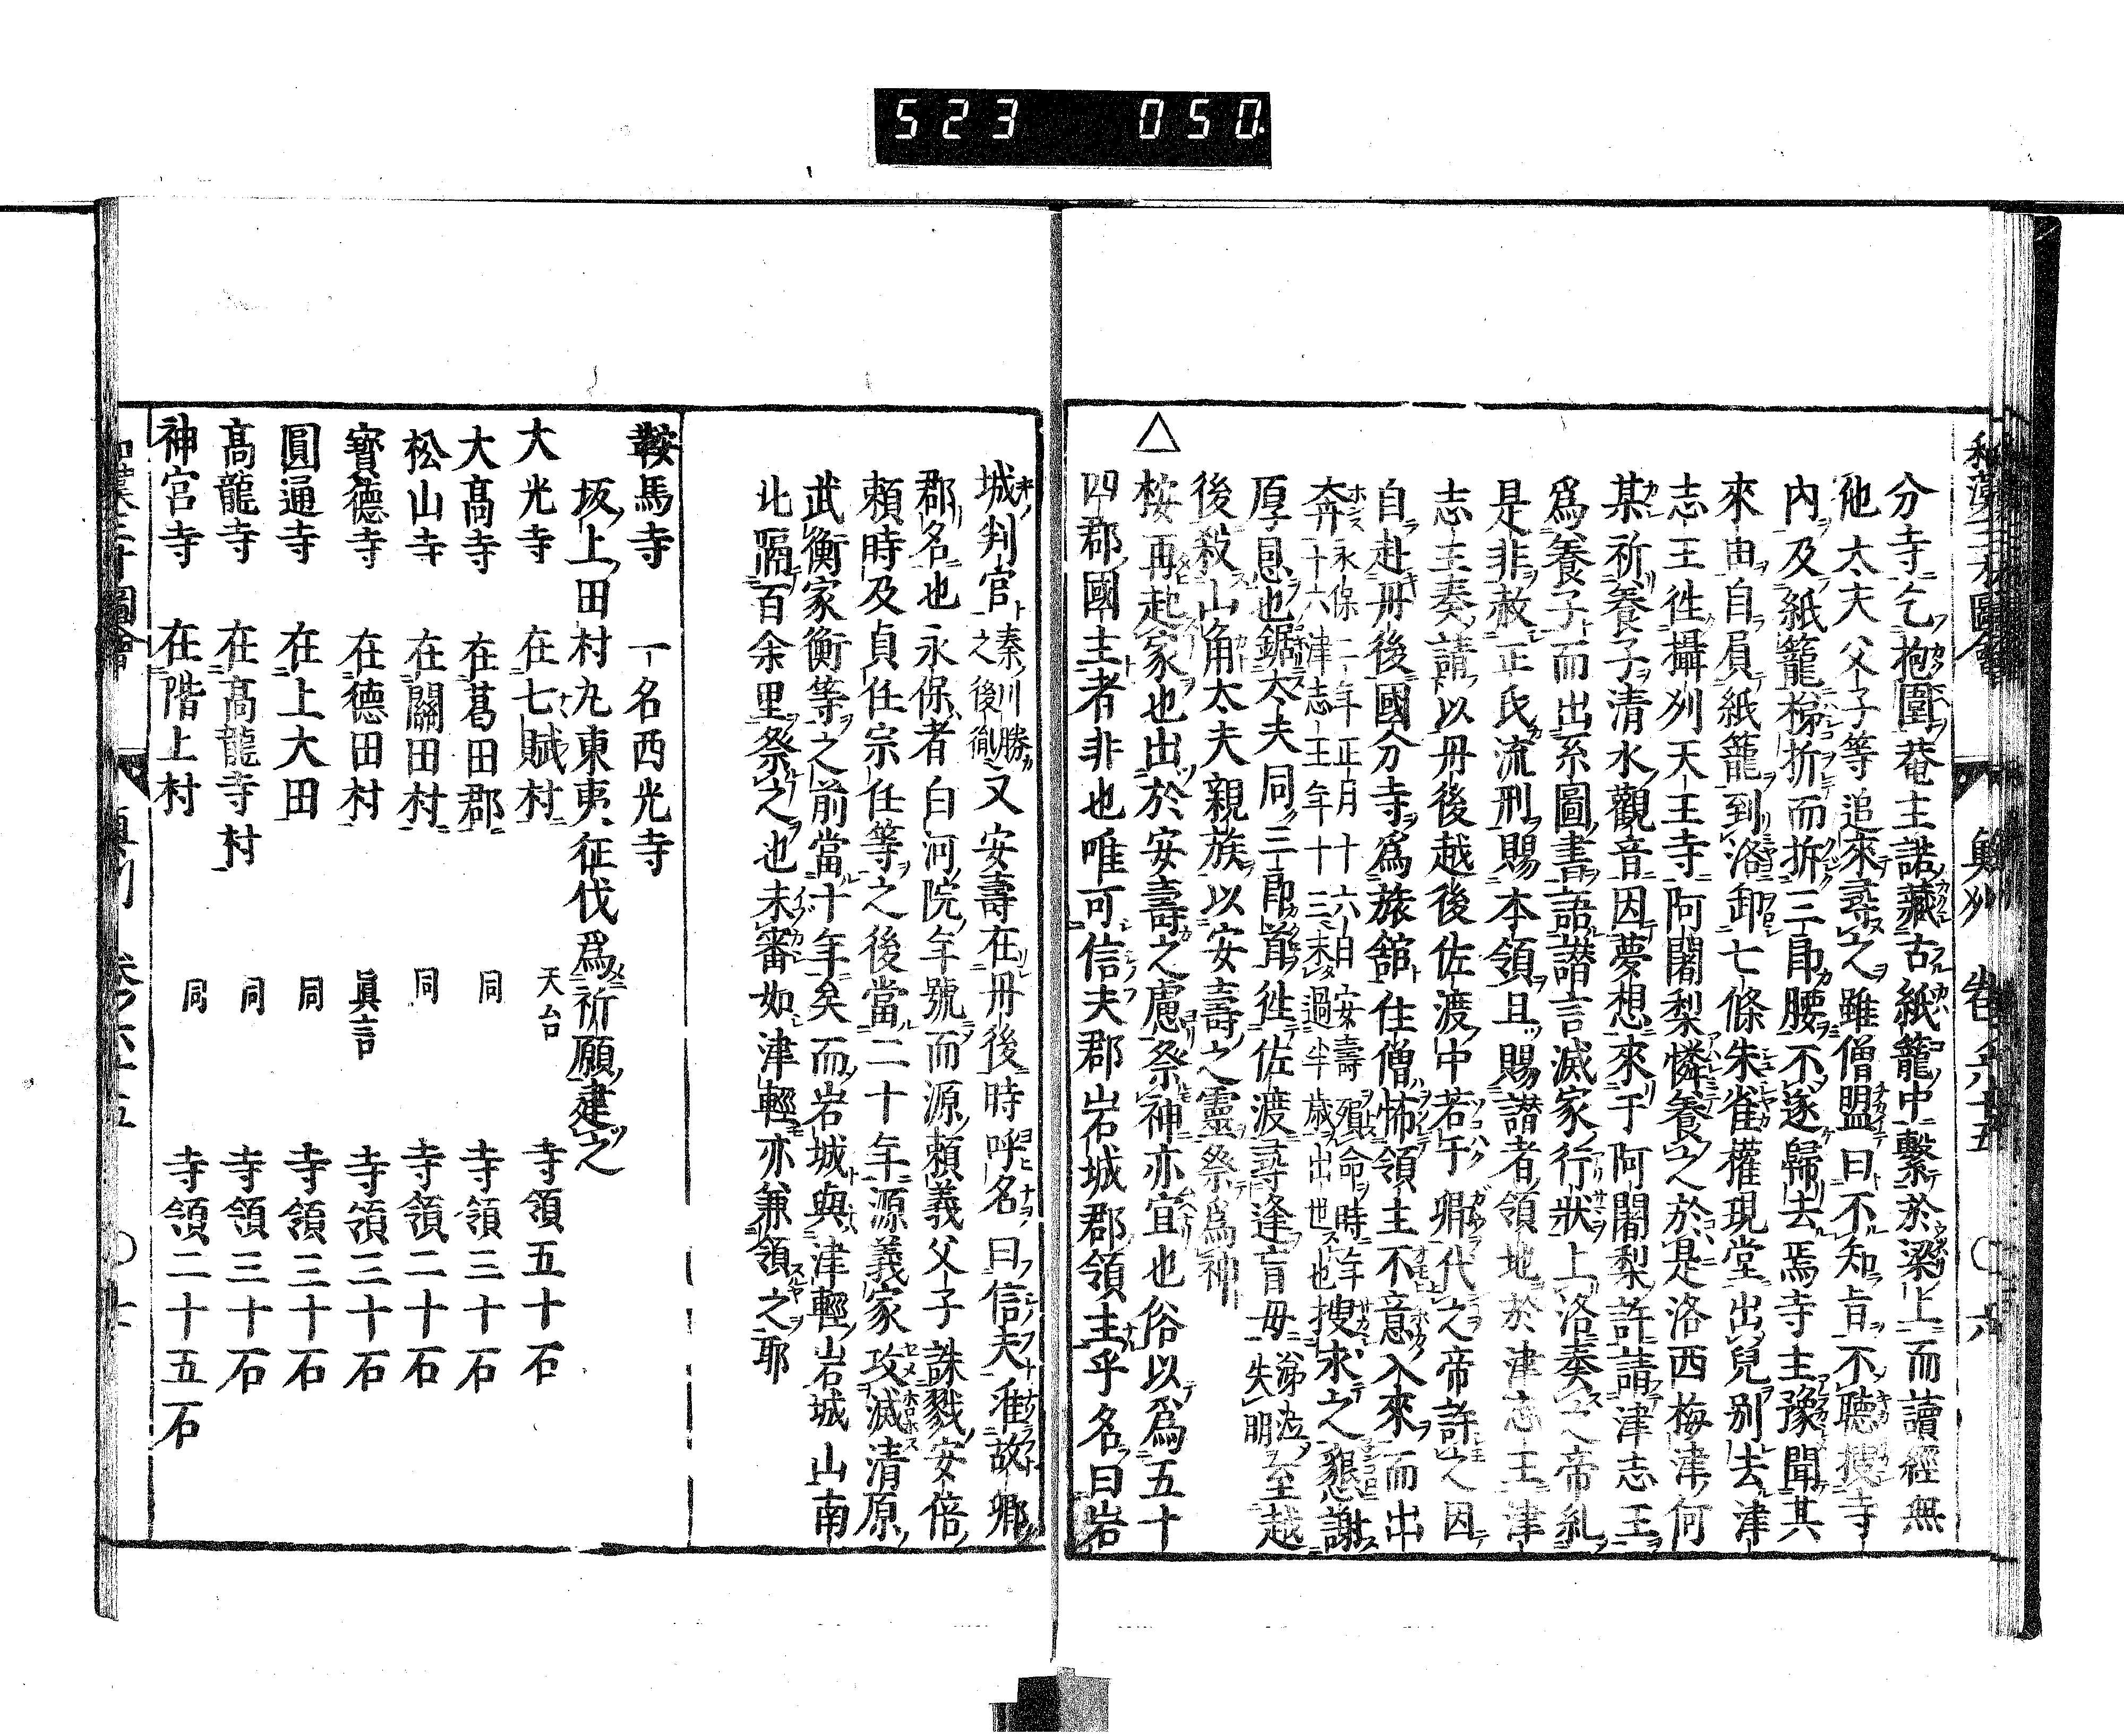 523 050
和漢三才圖會 奥州 卷六十五 〇 六
分寺乞抱圍菴主諾藏古紙籠中繫於梁上而讀經無
他太夫父子等追來尋之雖僧盟曰不知旨不聽搜寺
內及紙籠梯折而拆三郎腰不遂歸去焉寺主豫聞其
來由自屓紙籠到洛卸七條朱雀權現堂出兒別去津
志王徃攝刕天王寺阿闍梨憐養之於是洛西梅津何
某祈養子清水觀音因夢想來于阿闍梨許請津志王
爲養子而出系圖書語譛言滅家行狀上洛奏之帝糺
是非赦正氏流刑賜本領且賜譛者領地於津志王津
志王奏請以丹後越後佐渡中若干鄕代之帝許之因
自赴丹後國分寺爲旅舘住僧怖領主不意入來而出
奔永保二年正月十六日安壽殞命時年十六津志王年十三未過半歲出世也搜求之懇謝
厚恩也鋸太夫同三郎首徃佐渡尋逢盲母涕泣失明至越
後殺山角太夫親族以安壽之靈祭爲神
△桉再起家也出於安壽之慮祭神亦宜也俗以爲五十
四郡國主者非也唯可信夫郡岩城郡領主乎名曰岩
城判官秦川勝之後胤又安壽在丹後時呼名曰信夫准故鄕
郡名也永保者白河院年號而源賴義父子誅戮安倍
賴時及貞任宗任等之後當二十年源義家攻滅清原
武衡家衡等之前當十年矣而岩城與津輕岩城山南
北隔百余里祭之也未審如津輕亦兼領之耶
鞍馬寺 一名西光寺
坂上田村丸東夷征伐爲祈願建之
大光寺 在七賦村 天台 寺領五十石
大高寺 在葛田郡 同 寺領三十石
松山寺 在關田村 同 寺領二十石
寳德寺 在德田村 眞言 寺領三十石
圓通寺 在上大田 同 寺領三十石
高龍寺 在高龍寺村 同 寺領三十石
神宮寺 在階上村 同 寺領二十五石